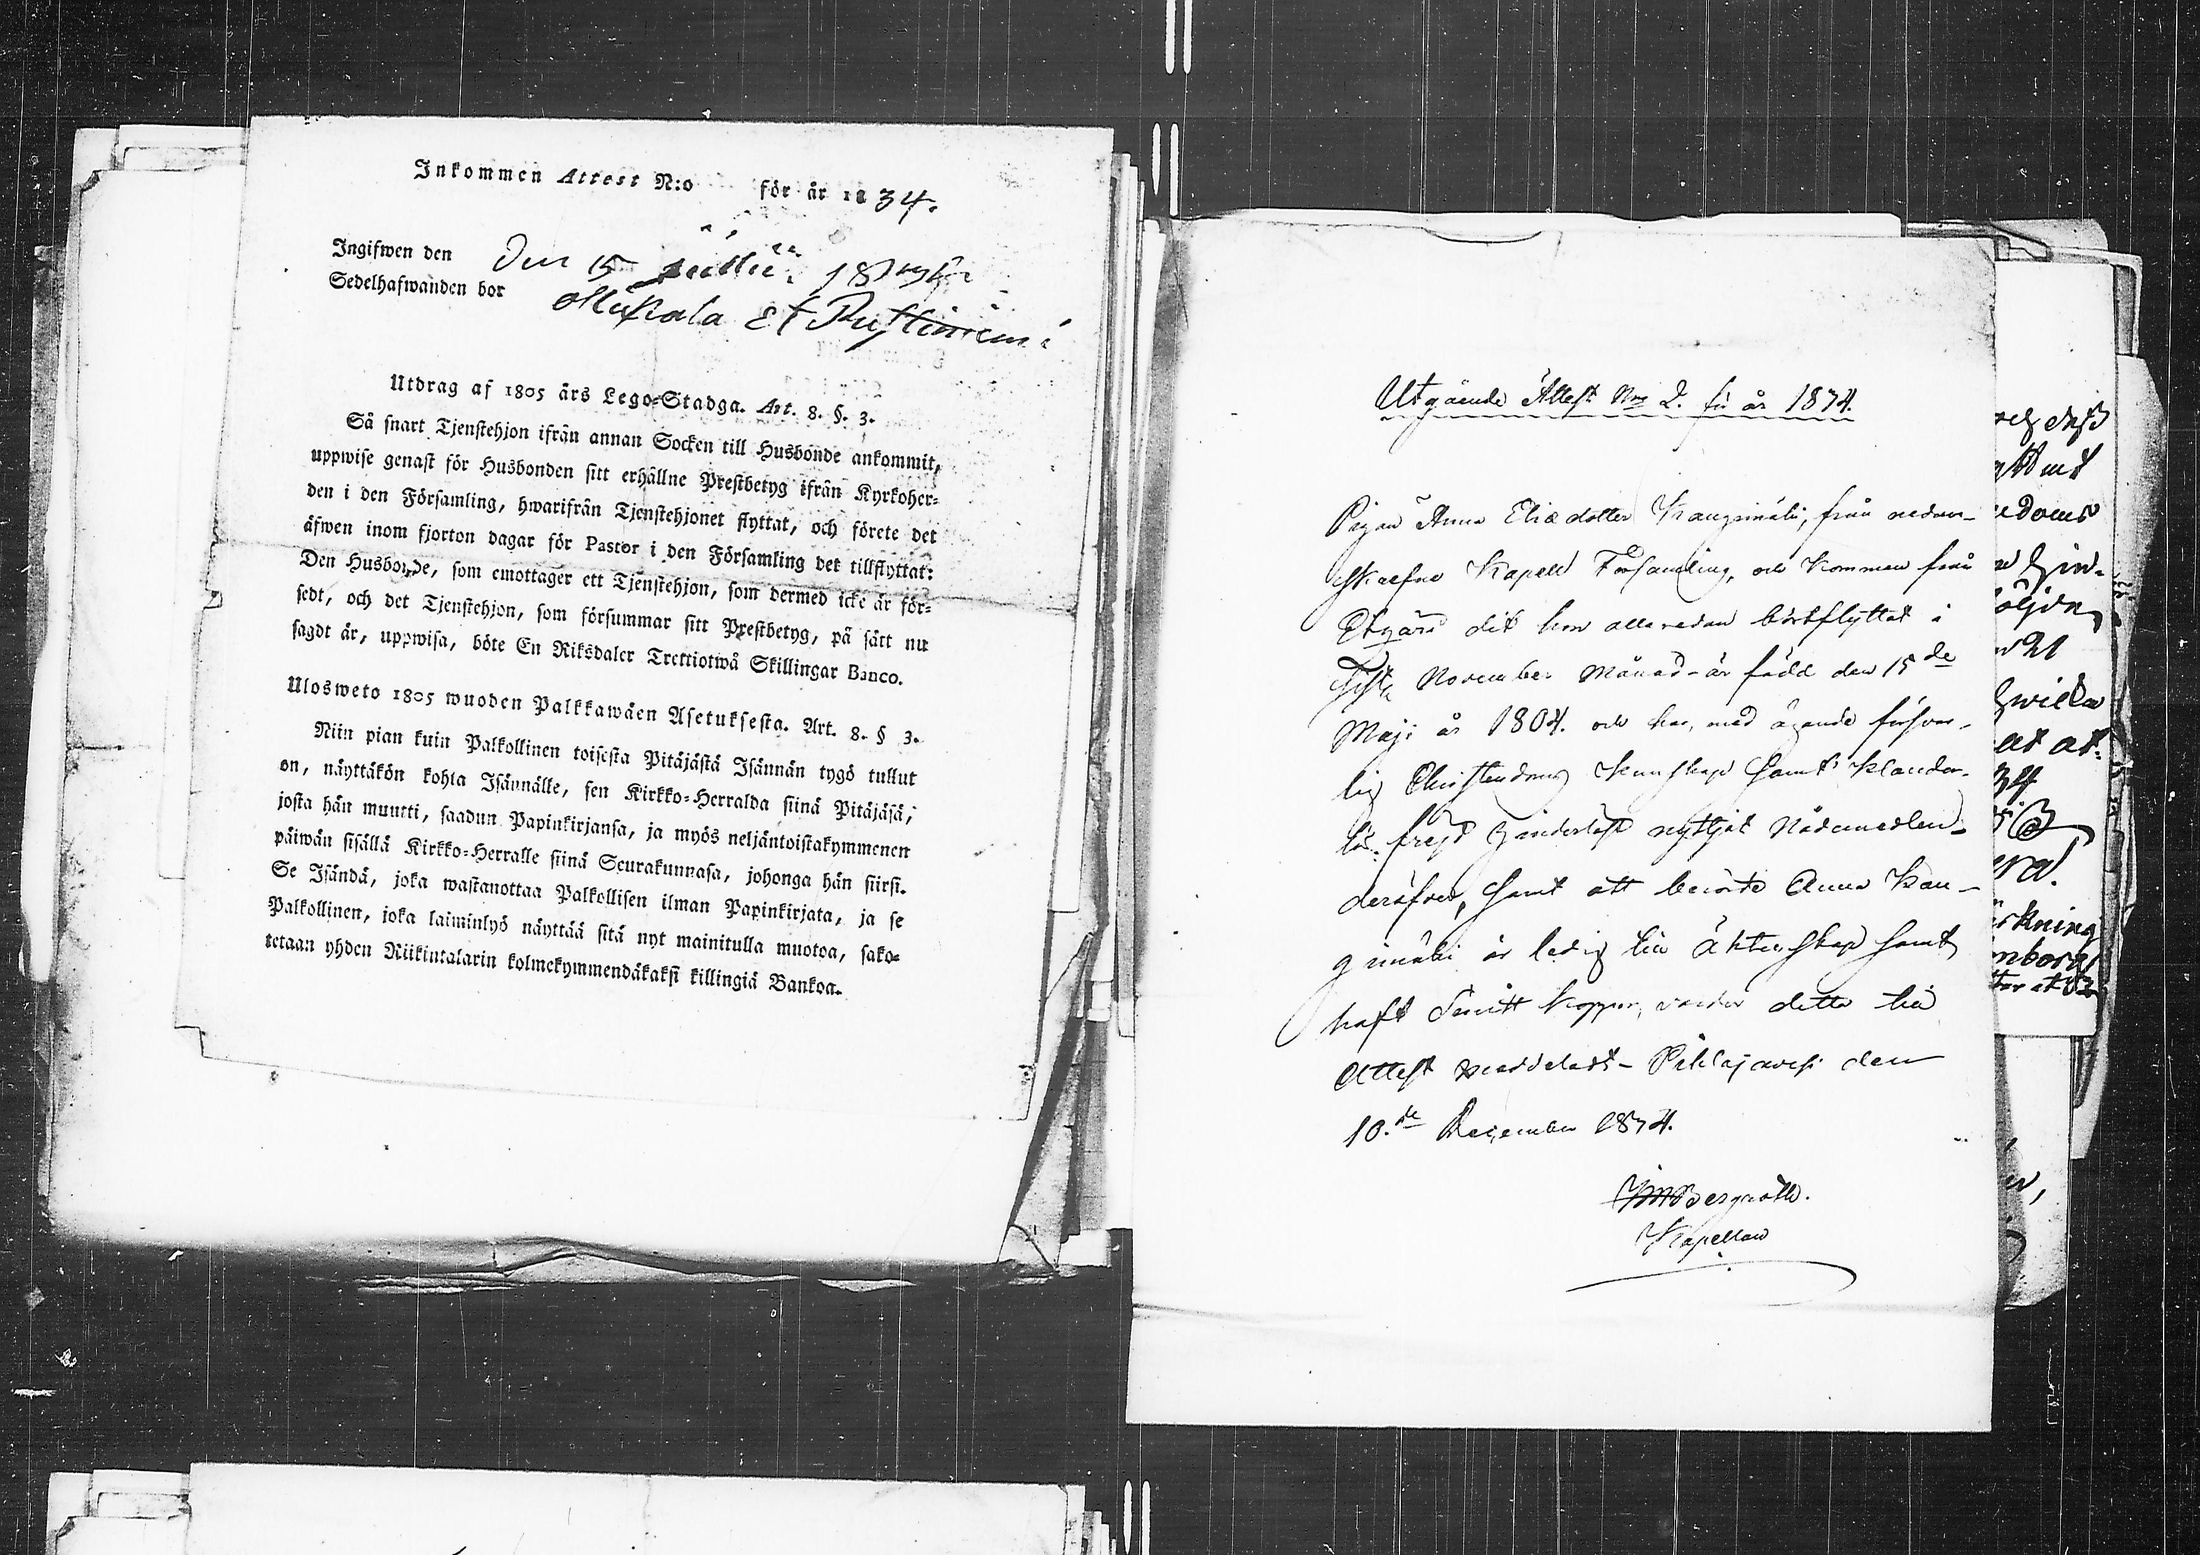 Inkommen Attest N:o för år 1834.
Ingifwen den Den 15
Sedelhafwanden bor
Utdrag af 1805 års Lego-Stadga. Art. 8. §. 3.
Så snart Tjenstehjon ifrån annan Socken till Husbonde ankommit,
uppwise genast för Husbonden sitt erhållne Prestbetyg ifrån Kyrkoher-
den i den Församling, hwarifrån Tjenstehjonet flyttat, och förete det
äfwen inom fjorton dagar för Pastor i den Församling det tillflyttat:
Den Husbonde, som emottager ett Tjenstehjon, som dermed icke är för-
sedt, och det Tjenstehjon, som försummar sitt Prestbetyg, på sått nu
sagdt är, uppwisa, böte En Riksdaler Trettiotwå Skillingar Banco.
Ulosweto 1805 wuoden Palkkawäen Asetuksesta. Art. 8. § 3.
Niin pian kuin Palkollinen toisesta Pitäjästä Isännän tygö tullut
on, näyttäkön kohta Isännälle, sen Kirkko-Herralda siinä Pitäjäsä,
josta hän muutti, saadun Papinkirjansa, ja myös neljäntoistakymmenen
päiwän sisällä Kirkko-Herralle siinä Seurakunnasa, johonga hän siirsi.
Se Isändä, joka wastanottaa Palkollisen ilman Papinkirjata, ja se
Palkollinen, joka laiminlyö näyttää sitä nyt mainitulla muotoa, sako-
tetaan yhden Riikintalarin kolmekymmendäkaksi killingiä Bankoa.
Utgående Attest No 2. för år 1834.
Pigan Anna Eliædotter Kangsmäki, från nedan-
skrefne Kapell Församling, och kommen från
dit hon allaredan bortflyttat i
sista November Månad - är född den 15de
Maji år 1804. och har, med ägande försvar-
lig Christendoms Kunskap samt klander-
lös frejd hinderlöst nyttjat Nådemedlen
derstädes, samt att berörde Anna Kan-
gsmäki är ledig till äktenskap samt
haft koppor, varder detta till
Attest meddeladt - Pihlajavesi den
10.de December 1834.
Bergroth.
Kapellan